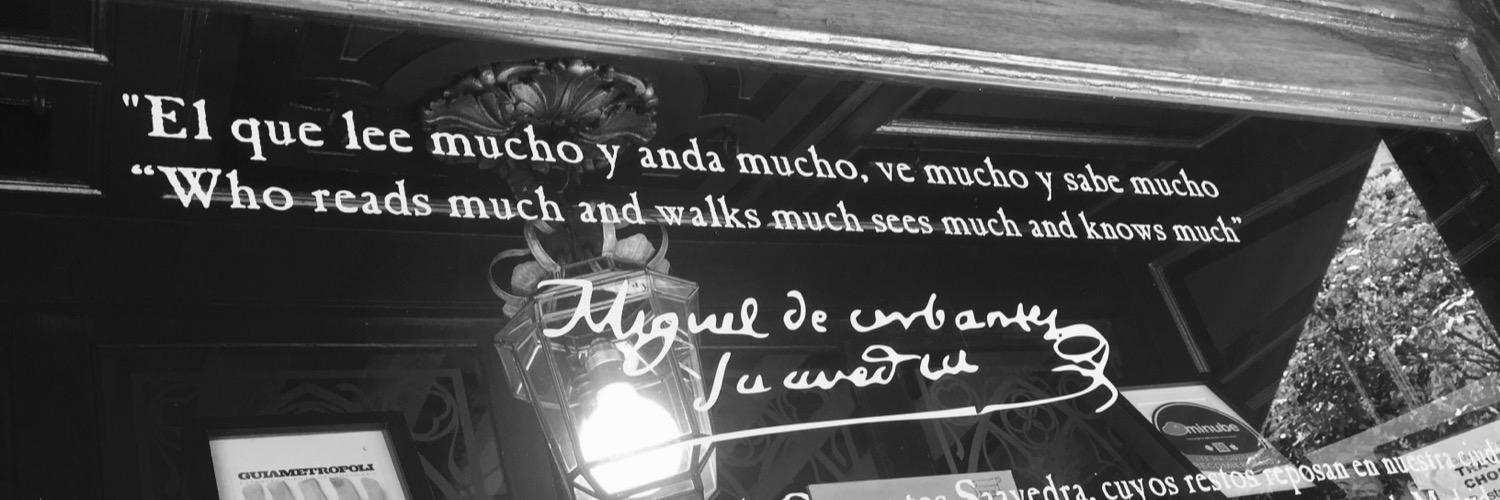 "El que lee mucho y anda mucho, ve mucho y sabe mucho
“Who reads much and walks much sees much and knows much”
Miguel de cerbantes
Saavedra
GUIAMETROPOLI
minube
Saavedra, cuyos restos reposan en nuestra